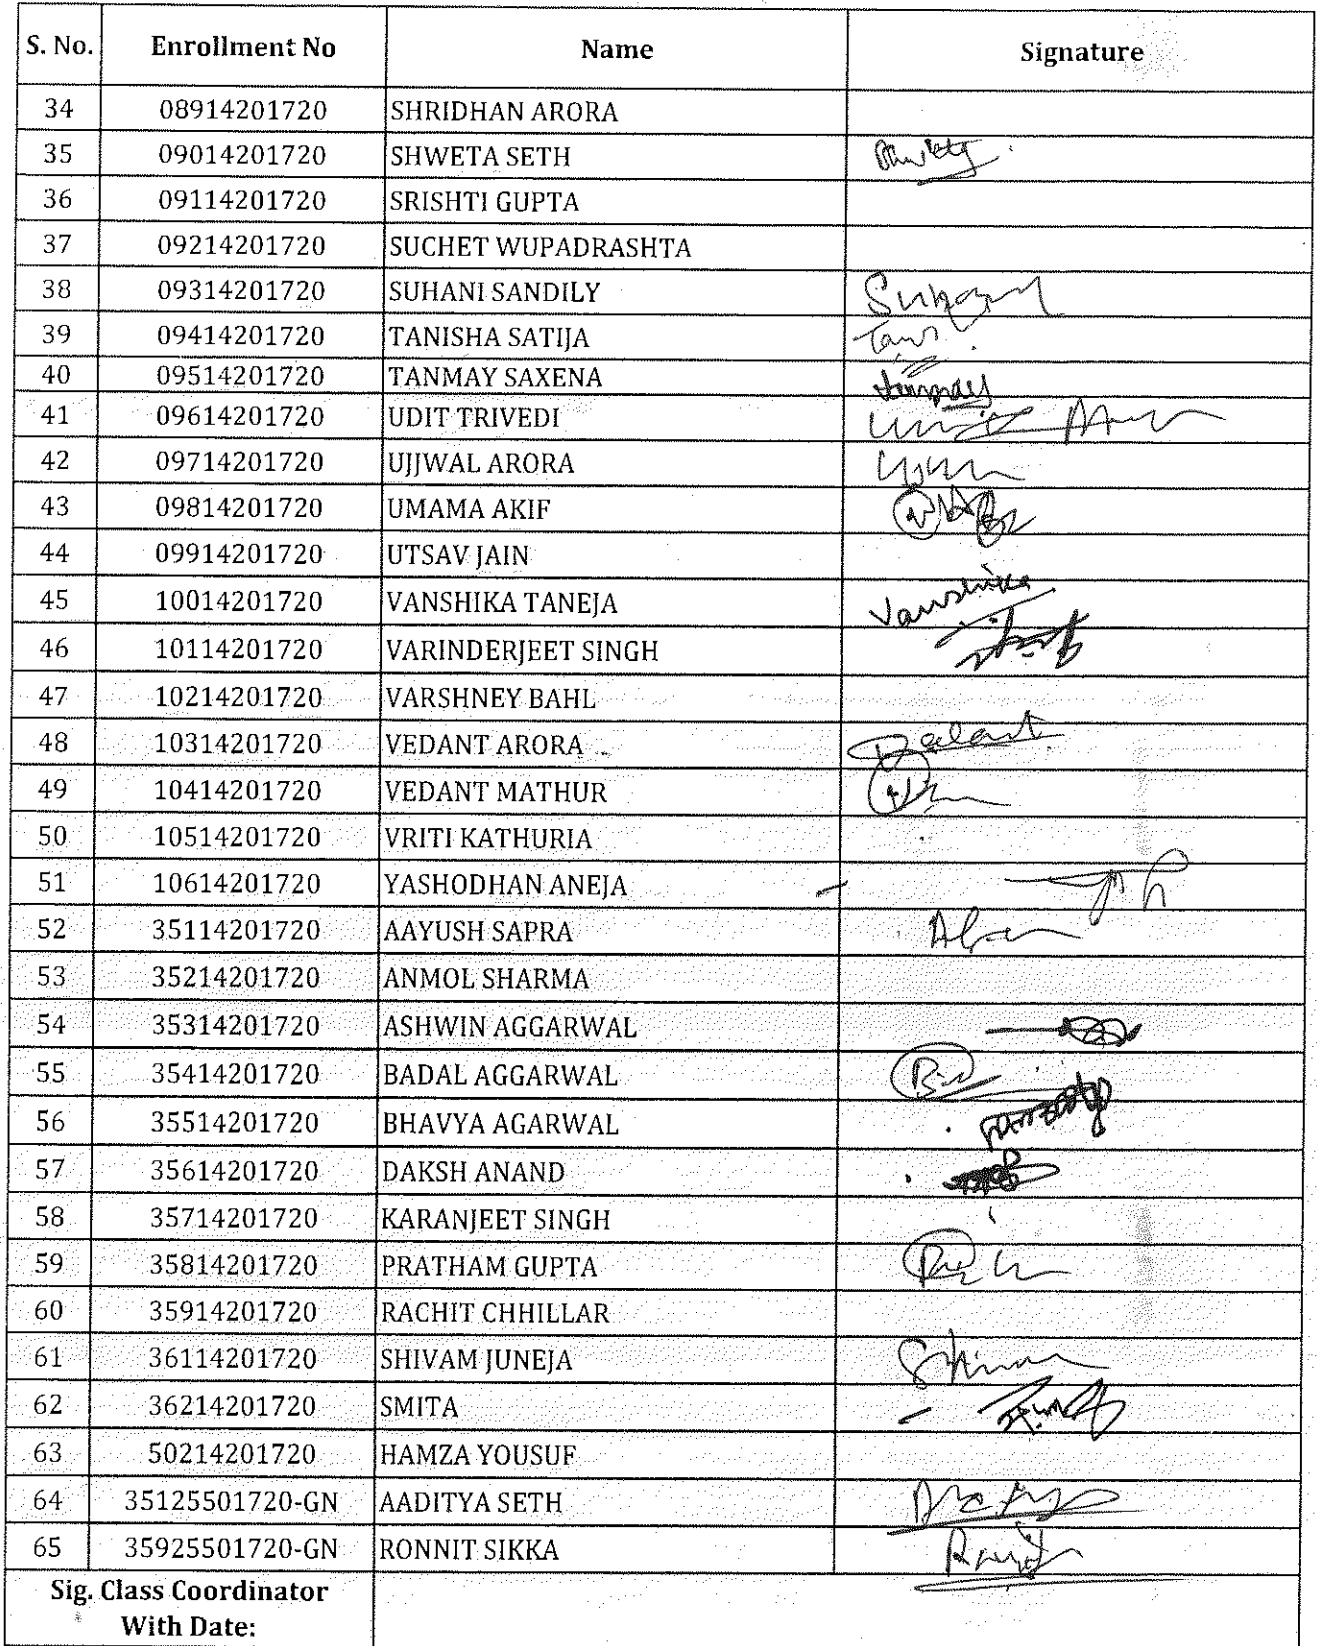 S. No. Enrollment No Name Signature
34 08914201720 SHRIDHAN ARORA
35 09014201720 SHWETA SETH
36 09114201720 SRISHTI GUPTA
37 09214201720 SUCHET WUPADRASHTA
38 09314201720 SUHANI SANDILY
39 09414201720 TANISHA SATIJA
40 09514201720 TANMAY SAXENA
41 09614201720 UDIT TRIVEDI
42 09714201720 UJJWAL ARORA
43 09814201720 UMAMA AKIF
44 09914201720 UTSAV JAIN
45 10014201720 VANSHIKA TANEJA Vanshika
46 10114201720 VARINDERJEET SINGH
47 10214201720 VARSHNEY BAHL
48 10314201720 VEDANT ARORA
49 10414201720 VEDANT MATHUR
50 10514201720 VRITI KATHURIA
51 10614201720 YASHODHAN ANEJA
52 35114201720 AAYUSH SAPRA
53 35214201720 ANMOL SHARMA
54 35314201720 ASHWIN AGGARWAL
55 35414201720 BADAL AGGARWAL
56 35514201720 BHAVYA AGARWAL
57 35614201720 DAKSH ANAND
58 35714201720 KARANJEET SINGH
59 35814201720 PRATHAM GUPTA
60 35914201720 RACHIT CHHILLAR
61 36114201720 SHIVAM JUNEJA
62 36214201720 SMITA
63 50214201720 HAMZA YOUSUF
64 35125501720-GN AADITYA SETH
65 35925501720-GN RONNIT SIKKA
Sig. Class Coordinator
With Date: